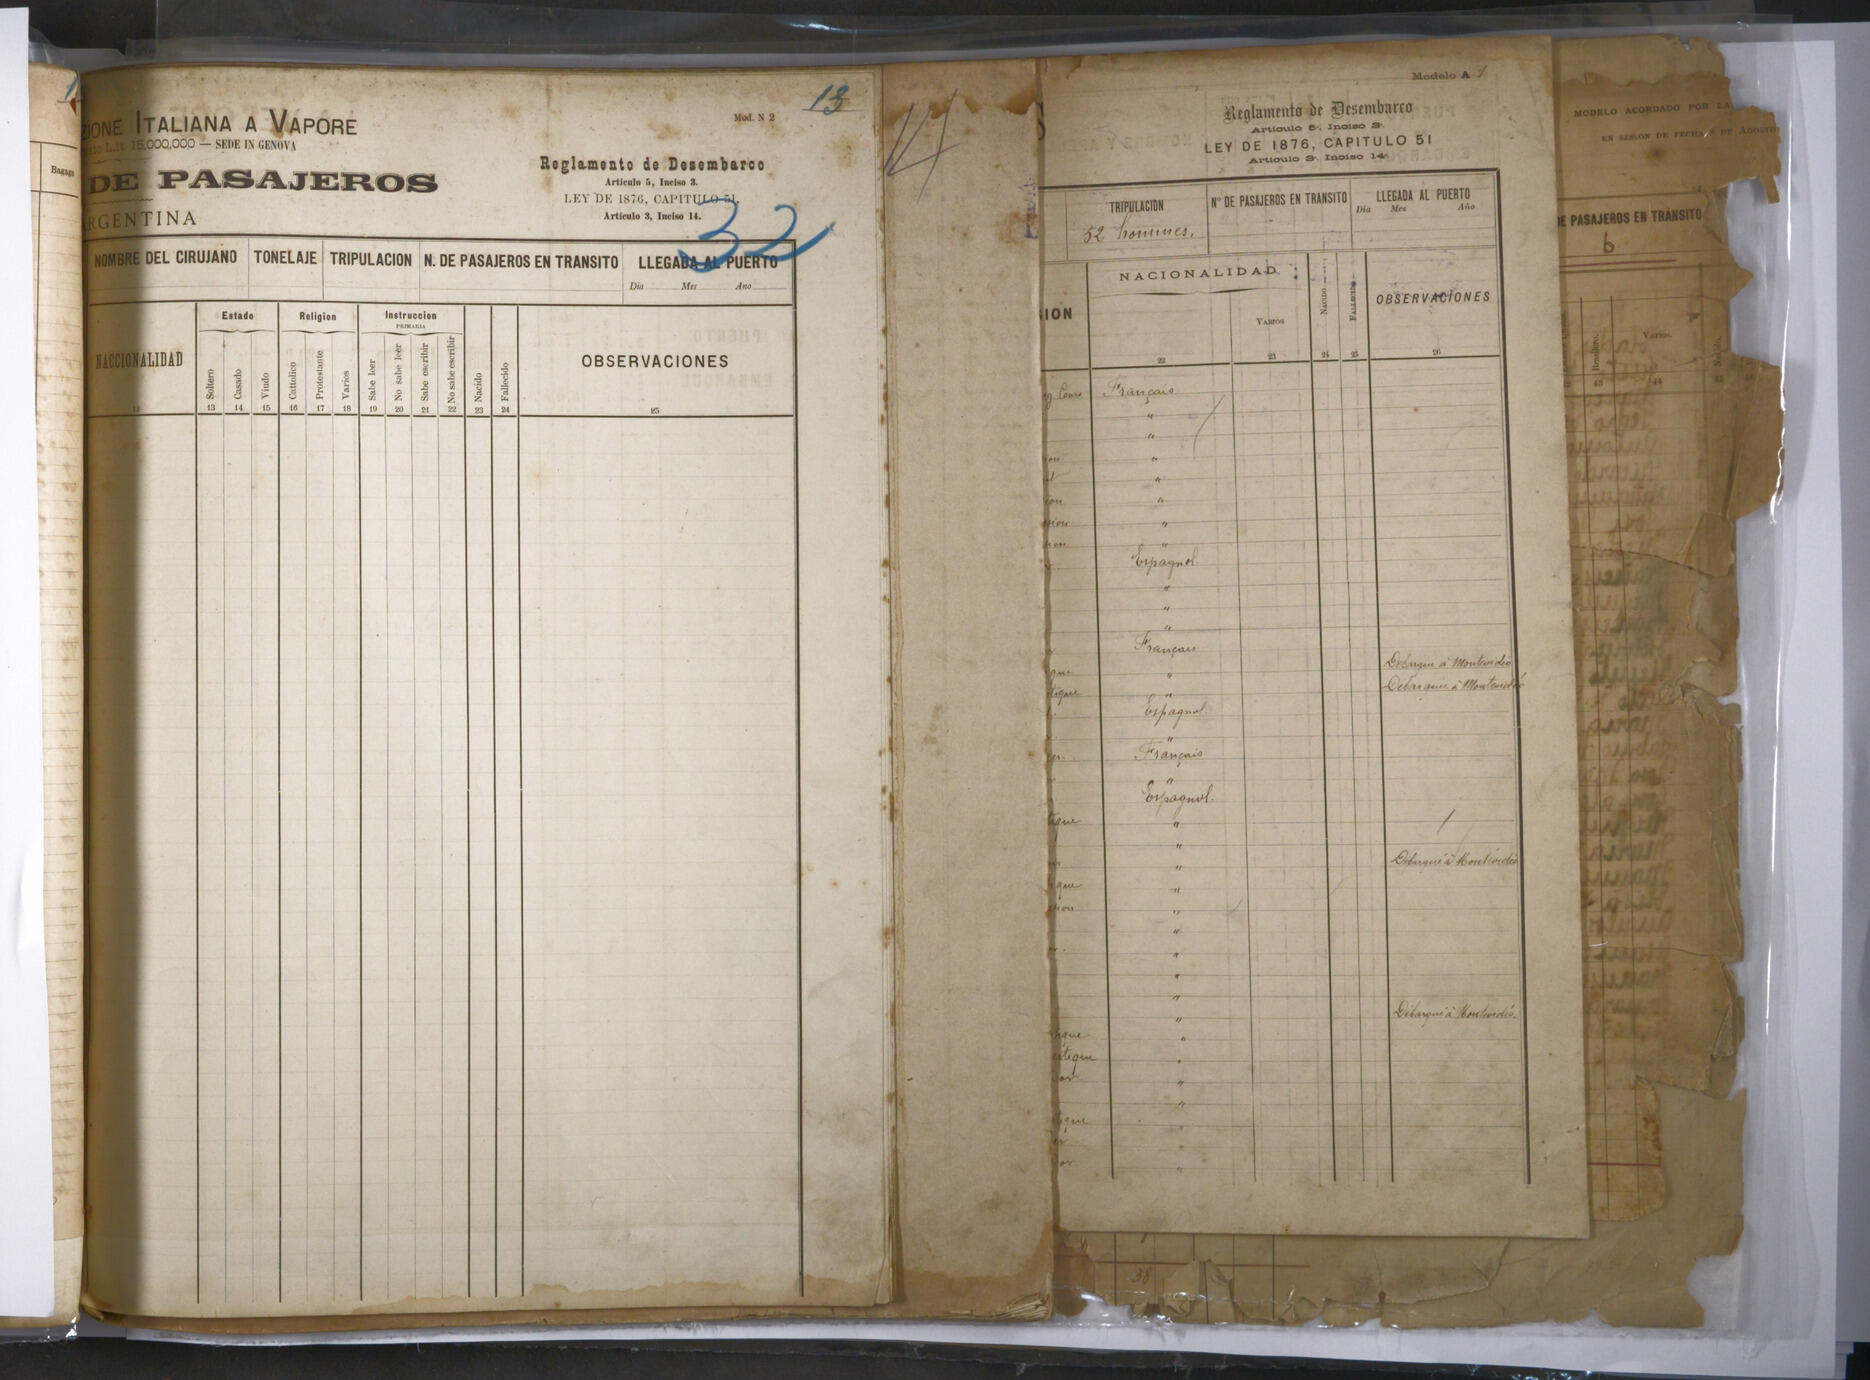 Bagage
13
Mod. N 2
ZIONE ITALIANA A VAPORE
L.it. 15,000,000 — SEDE IN GENOVA
DE PASAJEROS
ARGENTINA
Reglamento de Desembarco
Articulo 5, Inciso 3.
LEY DE 1876, CAPITULO 51.
Articulo 3, Inciso 14.
32
NOMBRE DEL CIRUJANO TONELAJE TRIPULACION N. DE PASAJEROS EN TRANSITO LLEGADA AL PUERTO
Dia Mes Ano
NACCIONALIDAD
Estado Religion Instruccion
PRIMARIA
Soltero Casado Viudo Cattolico Protestante Varios Sabe leer No sabe leer Sabe escribir No sabe escribir Nacido Fallecido
OBSERVACIONES
12 13 14 15 16 17 18 19 20 21 22 23 24 25
14
Modelo A 1
Reglamento de Desembarco
Articulo 5, Inciso 3.
LEY DE 1876, CAPITULO 51
Articulo 3. Inciso 14.
TRIPULACION Nº DE PASAJEROS EN TRANSITO LLEGADA AL PUERTO
Dia Mes Año
52 hommes.
ION
NACIONALIDAD
VARIOS
NACIDO
FALLECIDO
OBSERVACIONES
22 23 24 25 26
Français
"
"
"
"
"
"
"
Espagnol.
"
"
"
Français
" Débarqué à Montevideo
" Débarqué à Montevideo
Espagnol.
"
Français
"
Espagnol.
"
"
" Débarqué à Montévidéo
"
"
"
"
"
"
" Débarqué à Montevideo.
"
"
"
"
"
"
"
38
MODELO ACORDADO POR LA
EN SESION DE FECHA 8 DE AGOSTO
DE PASAJEROS EN TRÁNSITO
6
Varios.
43 44